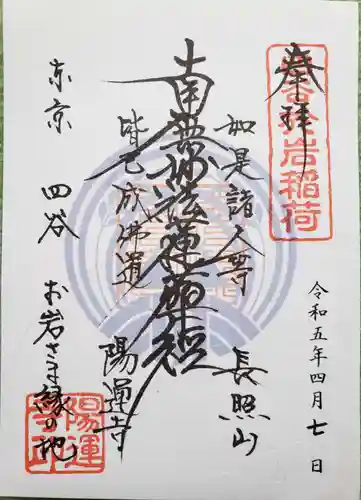 奉拝
於岩稲荷
令和五年四月七日
如是諸人等
長照山
南無妙法蓮華経
皆已成佛道
陽運寺
東京 四谷 お岩さま縁の地
陽運